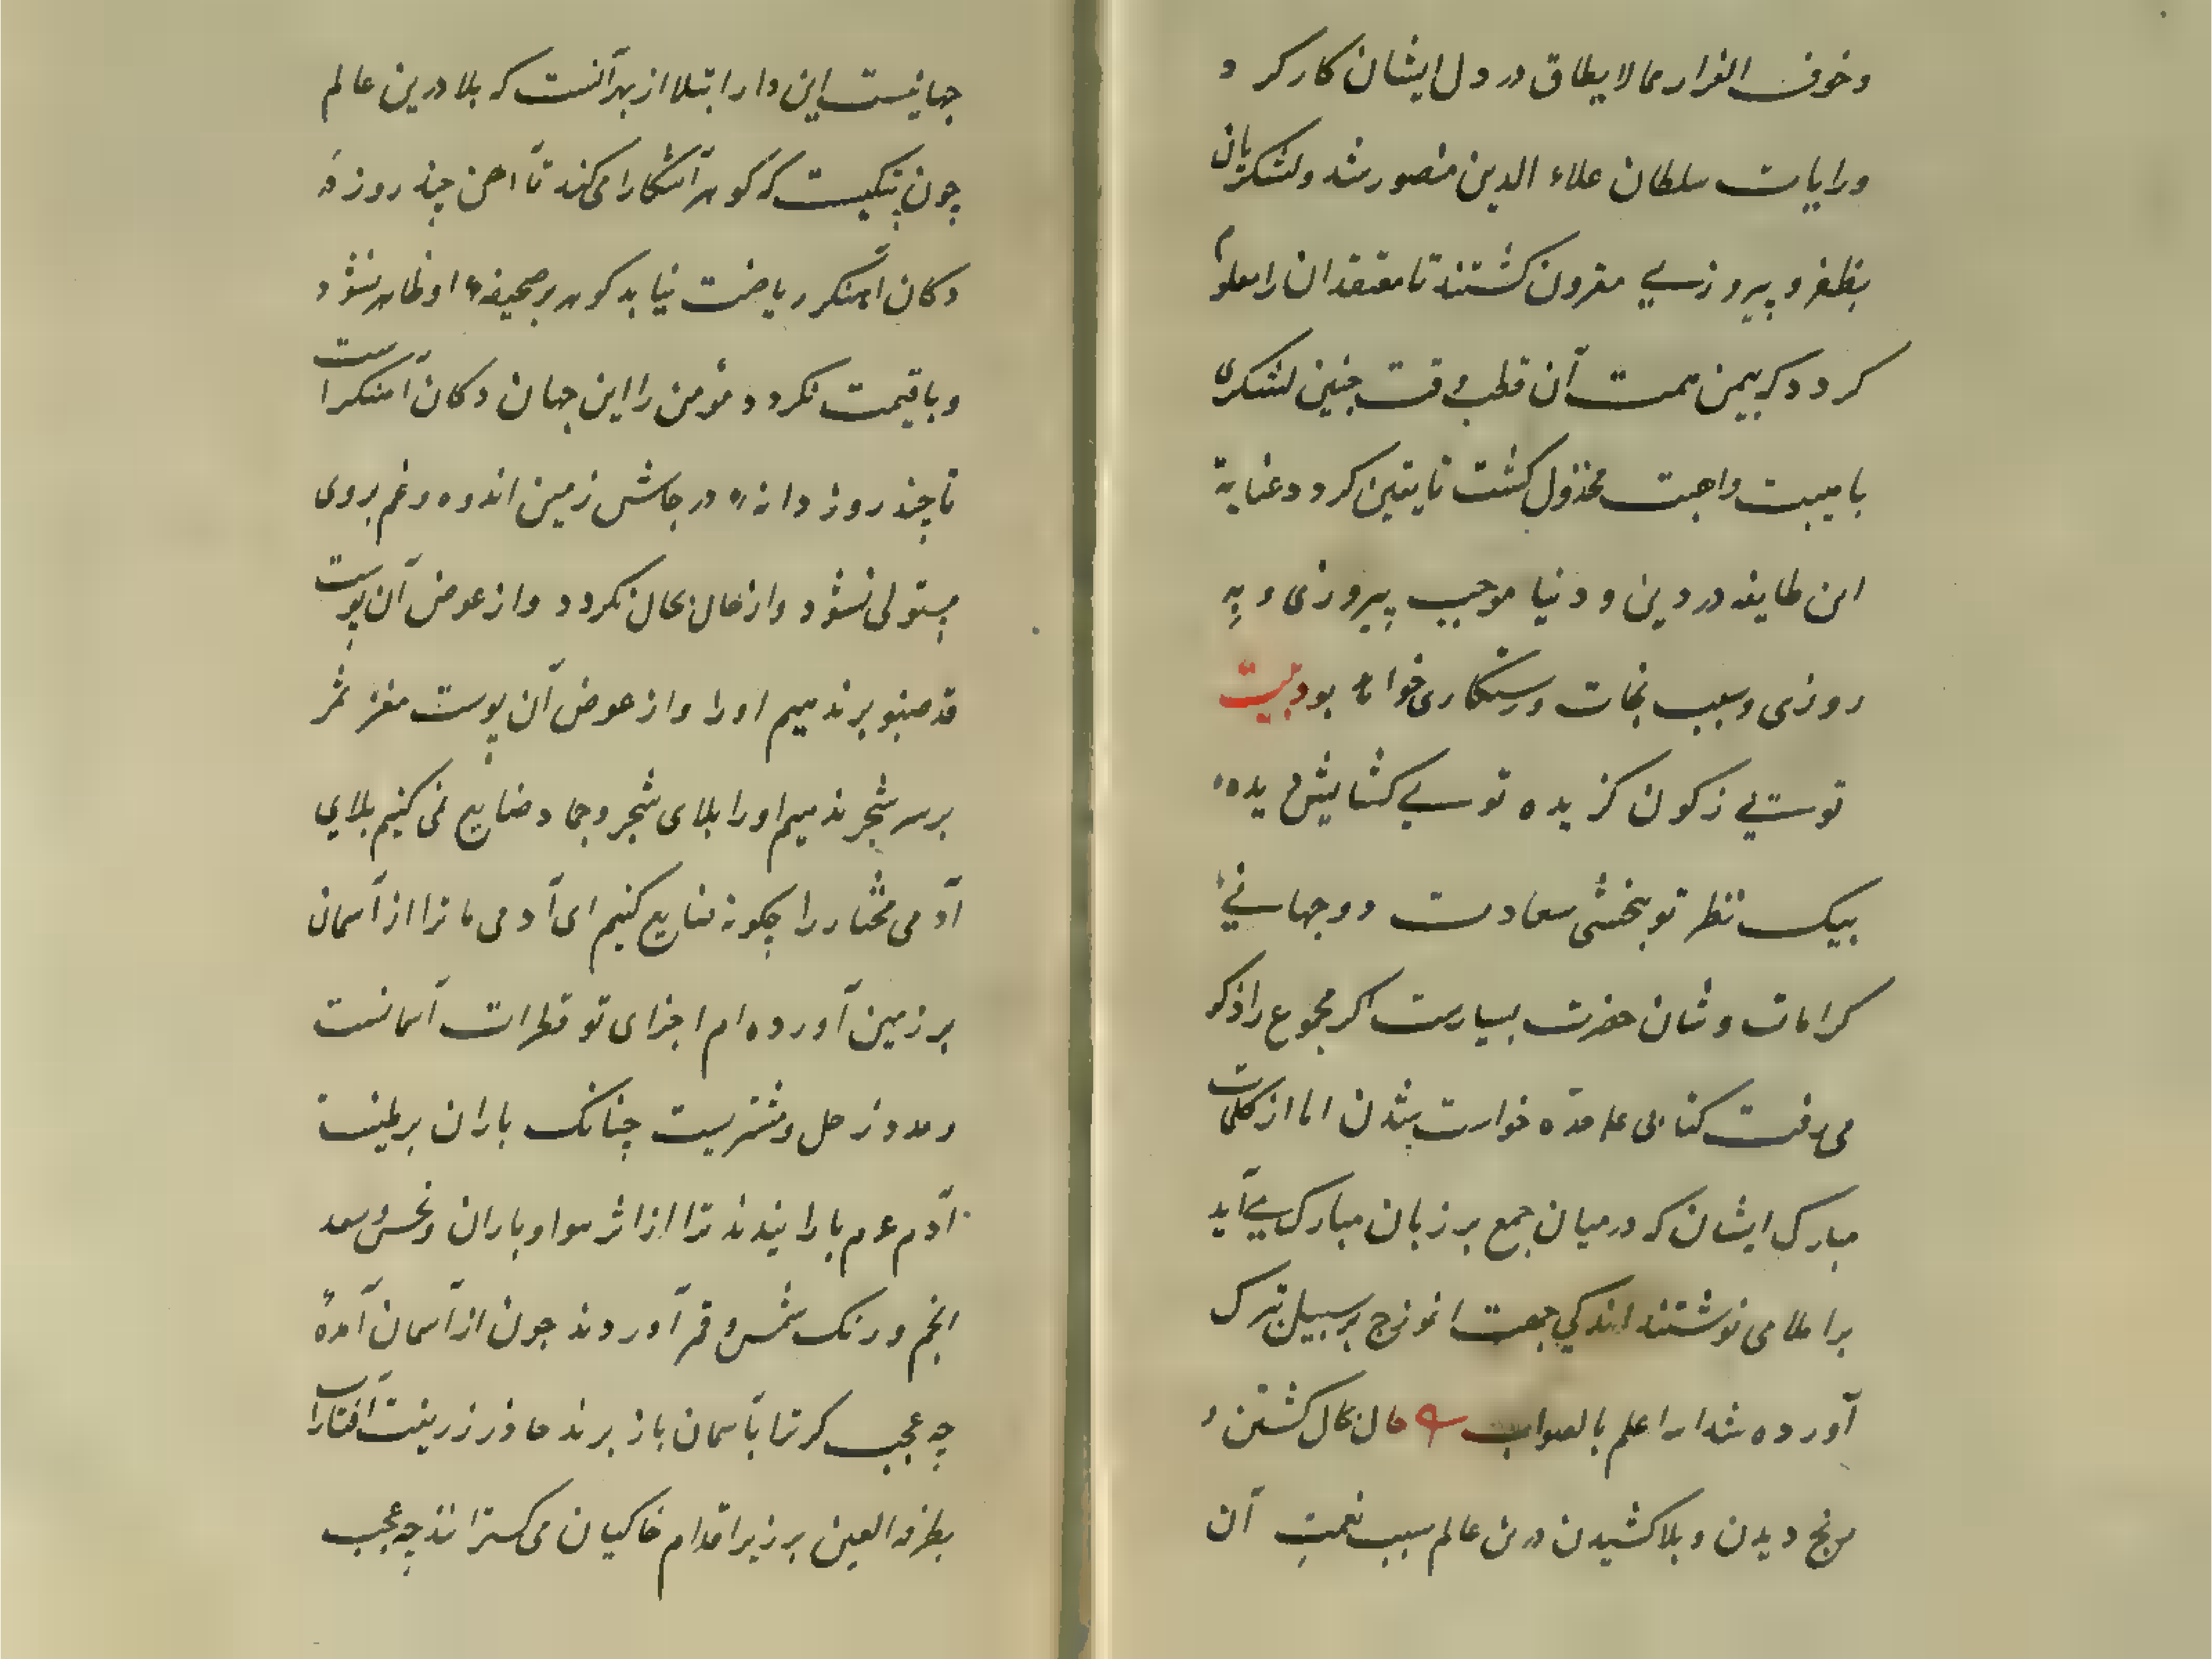 وخوف الفرار مما لا یطاق در دل ایشان کار کرد
ورایات سلطان علاء الدین منصور شد ولشکریان
بظفر و پیروزی مقرون کشتند تا معتقدان را معلوم
کردد که بیمن همت آن قطب وقت چنین لشکری
با هیبت واهبت مخذول کشت تا یقین کردد عنایة
این طایفه در دین و دنیا موجب پیروزی و به
روزی وسبب نجات ورستکاری خواهد بود بیت
تویی زکون کزیده توی کشایش دیده
بیک نظر تو بخشی سعادت دوجهانی
کرامات وشان حضرت بسیارست اکر مجموع را ذکر
می رفت کتابی علاحده خواست شدن اما از کلمات
مبارک ایشان که در میان جمع بر زبان مبارک می آید
براملا می نوشتند اندکی جهت انموزج بر سبیل تبرک
آورده شد الله اعلم بالصواب حال بحال کشتن و
رنج دیدن و بلا کشیدن درین عالم سبب نعمت آن
جهانیست این دار ابتلا از بهر آنست که بلا درین عالم
چون پتکیست که کوهر آشکارا می کند تا آهن چند روز در
دکان آهنکر ریاضت نیابد کوهر بر صحیفهٔ او ظاهر نشود
وباقیمت نکردد مؤمن را این جهان دکان آهنکر است
تا چند روز دانه در جاش زمین اندوه وغم بروی
مستولی نشود واز حال بحال نکردد واز عوض آن پوست
قد صنوبر ندهیم اورا واز عوض آن پوست مغز ثمر
برسر شجر ندهیم اورا بلای شجر وجماد ضایع نمی کنیم بلای
آدمی مختار را چکونه ضایع کنیم ای آدمی ما ترا از آسمان
بر زمین آورده ام اجزای تو قطرات آسمانست
ومدد زحل ومشتریست چنانک باران بر طینت
آدم عم بارانیدند ترا از اثر هوا وباران ونحس وسعد
انجم ورنک شمس وقمر آوردند چون از آسمان آمدهٔ
چه عجب کر ترا بآسمان باز برند جاذر زرینت آفتاب را
بطرفة العین بر زیر اقدام خاکیان می کسترانند چه عجب